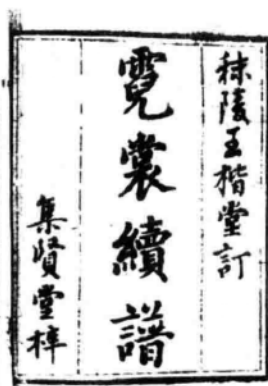 秣陵王楷堂訂
霓裳續譜
集賢堂梓